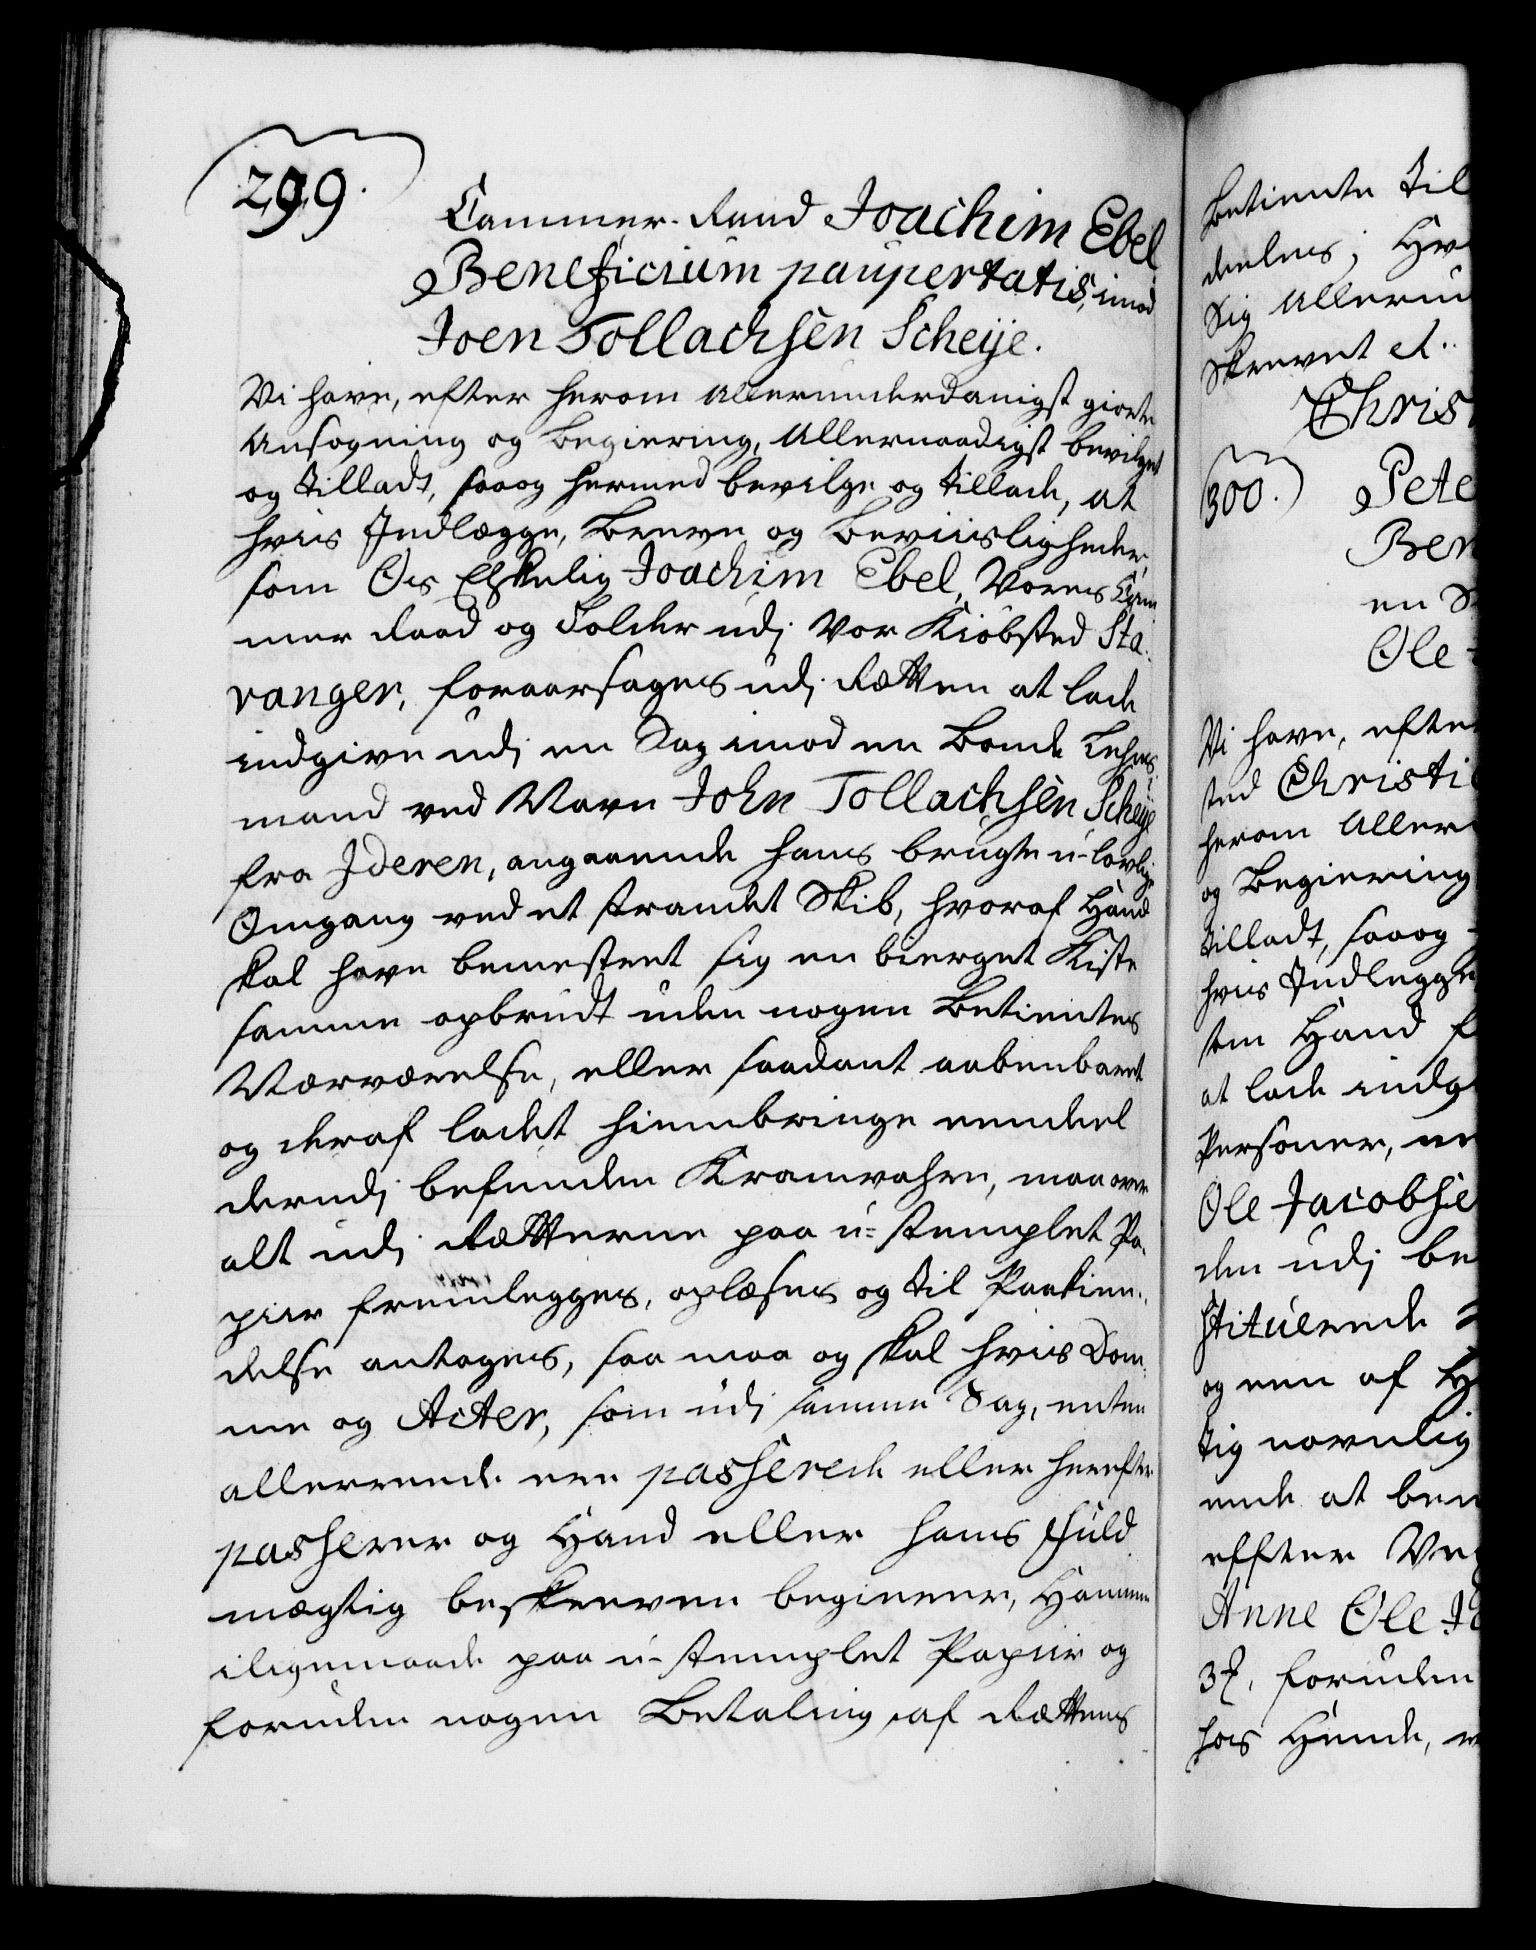 299.
Cammer-Raad Joachim Ebel
Beneficium paupertatis, imod
Joen Tollachsen Scheije.
Vi have, efter herom allerunderdanigst giorte
Ansøgning og Begiering, Allernaadigst bevilget
og tilladt, saaog hermed bevilge og tillade, at
hvis Indlægge, Breve og Beviisligheder,
som Os Elskelig Joachim Ebel, Vores Cam
mer Raad og Tolder udj Vor Kiøbsted Sta-
vanger, foraarsages udj Rætten at lade
indgive udj en Sag imod en Bonde Lehns
mand ved Navn John Tollachsen Scheije
fra Jderen, angaaende hans brugte u-lovlige
Omgang ved et strandet Skib, hvoraf Hand
skal have bemestret sig en bierget Kiste
samme opbrudt uden nogen Betientes
Nærværelse, eller saadant aabenbaret
og deraf ladet hiembringe eendeel
derudj befunden Kramvahre, maa over
alt udj Rætterne paa u-stemplet Pa-
piir fremlegges, oplæses og til Paakien-
delse antages, saa maa og skal hvis Dom-
me og Acter, som udj samme Sag, enten
allerreede ere passerede eller herefter
passerer og Hand eller hans Fuld
mægtig beskreven begierer, Hannem
iligemaade paa u-stemplet Papiir og
foruden nogen Betaling af Rættens
betiente til
deeles; Hv
Sig Alleru
Skrevet d.
Chris
300. Pete
Ben
en S
Ole
Vi have, efter
sted Christi
herom Aller
og Begiering
tilladt, saaog
hvis Indlegge
som Hand f
at lade indg
Personer, ve
Ole Jacobse
den udj be
stituerede
og een af H
tig navnlig
ende at be
effter Ve
Anne Ole J
3, foruden
hos Hende,